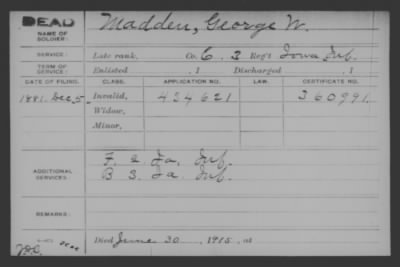 DEAD
NAME OF SOLDIER: Madden, George W.
SERVICE: Late rank, Co. C. 3 Reg't Iowa Inf.
TERM OF SERVICE: Enlisted , 1 Discharged , 1
DATE OF FILING. CLASS. APPLICATION NO. LAW. CERTIFICATE NO.
1881. Dec. 5 Invalid, 434621 360991.
Widow,
Minor,
F. 2. Ia. Inf.
ADDITIONAL SERVICES: B 3. Ia Inf.
REMARKS:
Died June 30, 1915, at